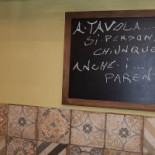 A TAVOLA...
SI PERDON
CHIUNQUE
ANCHE I...
PAREN